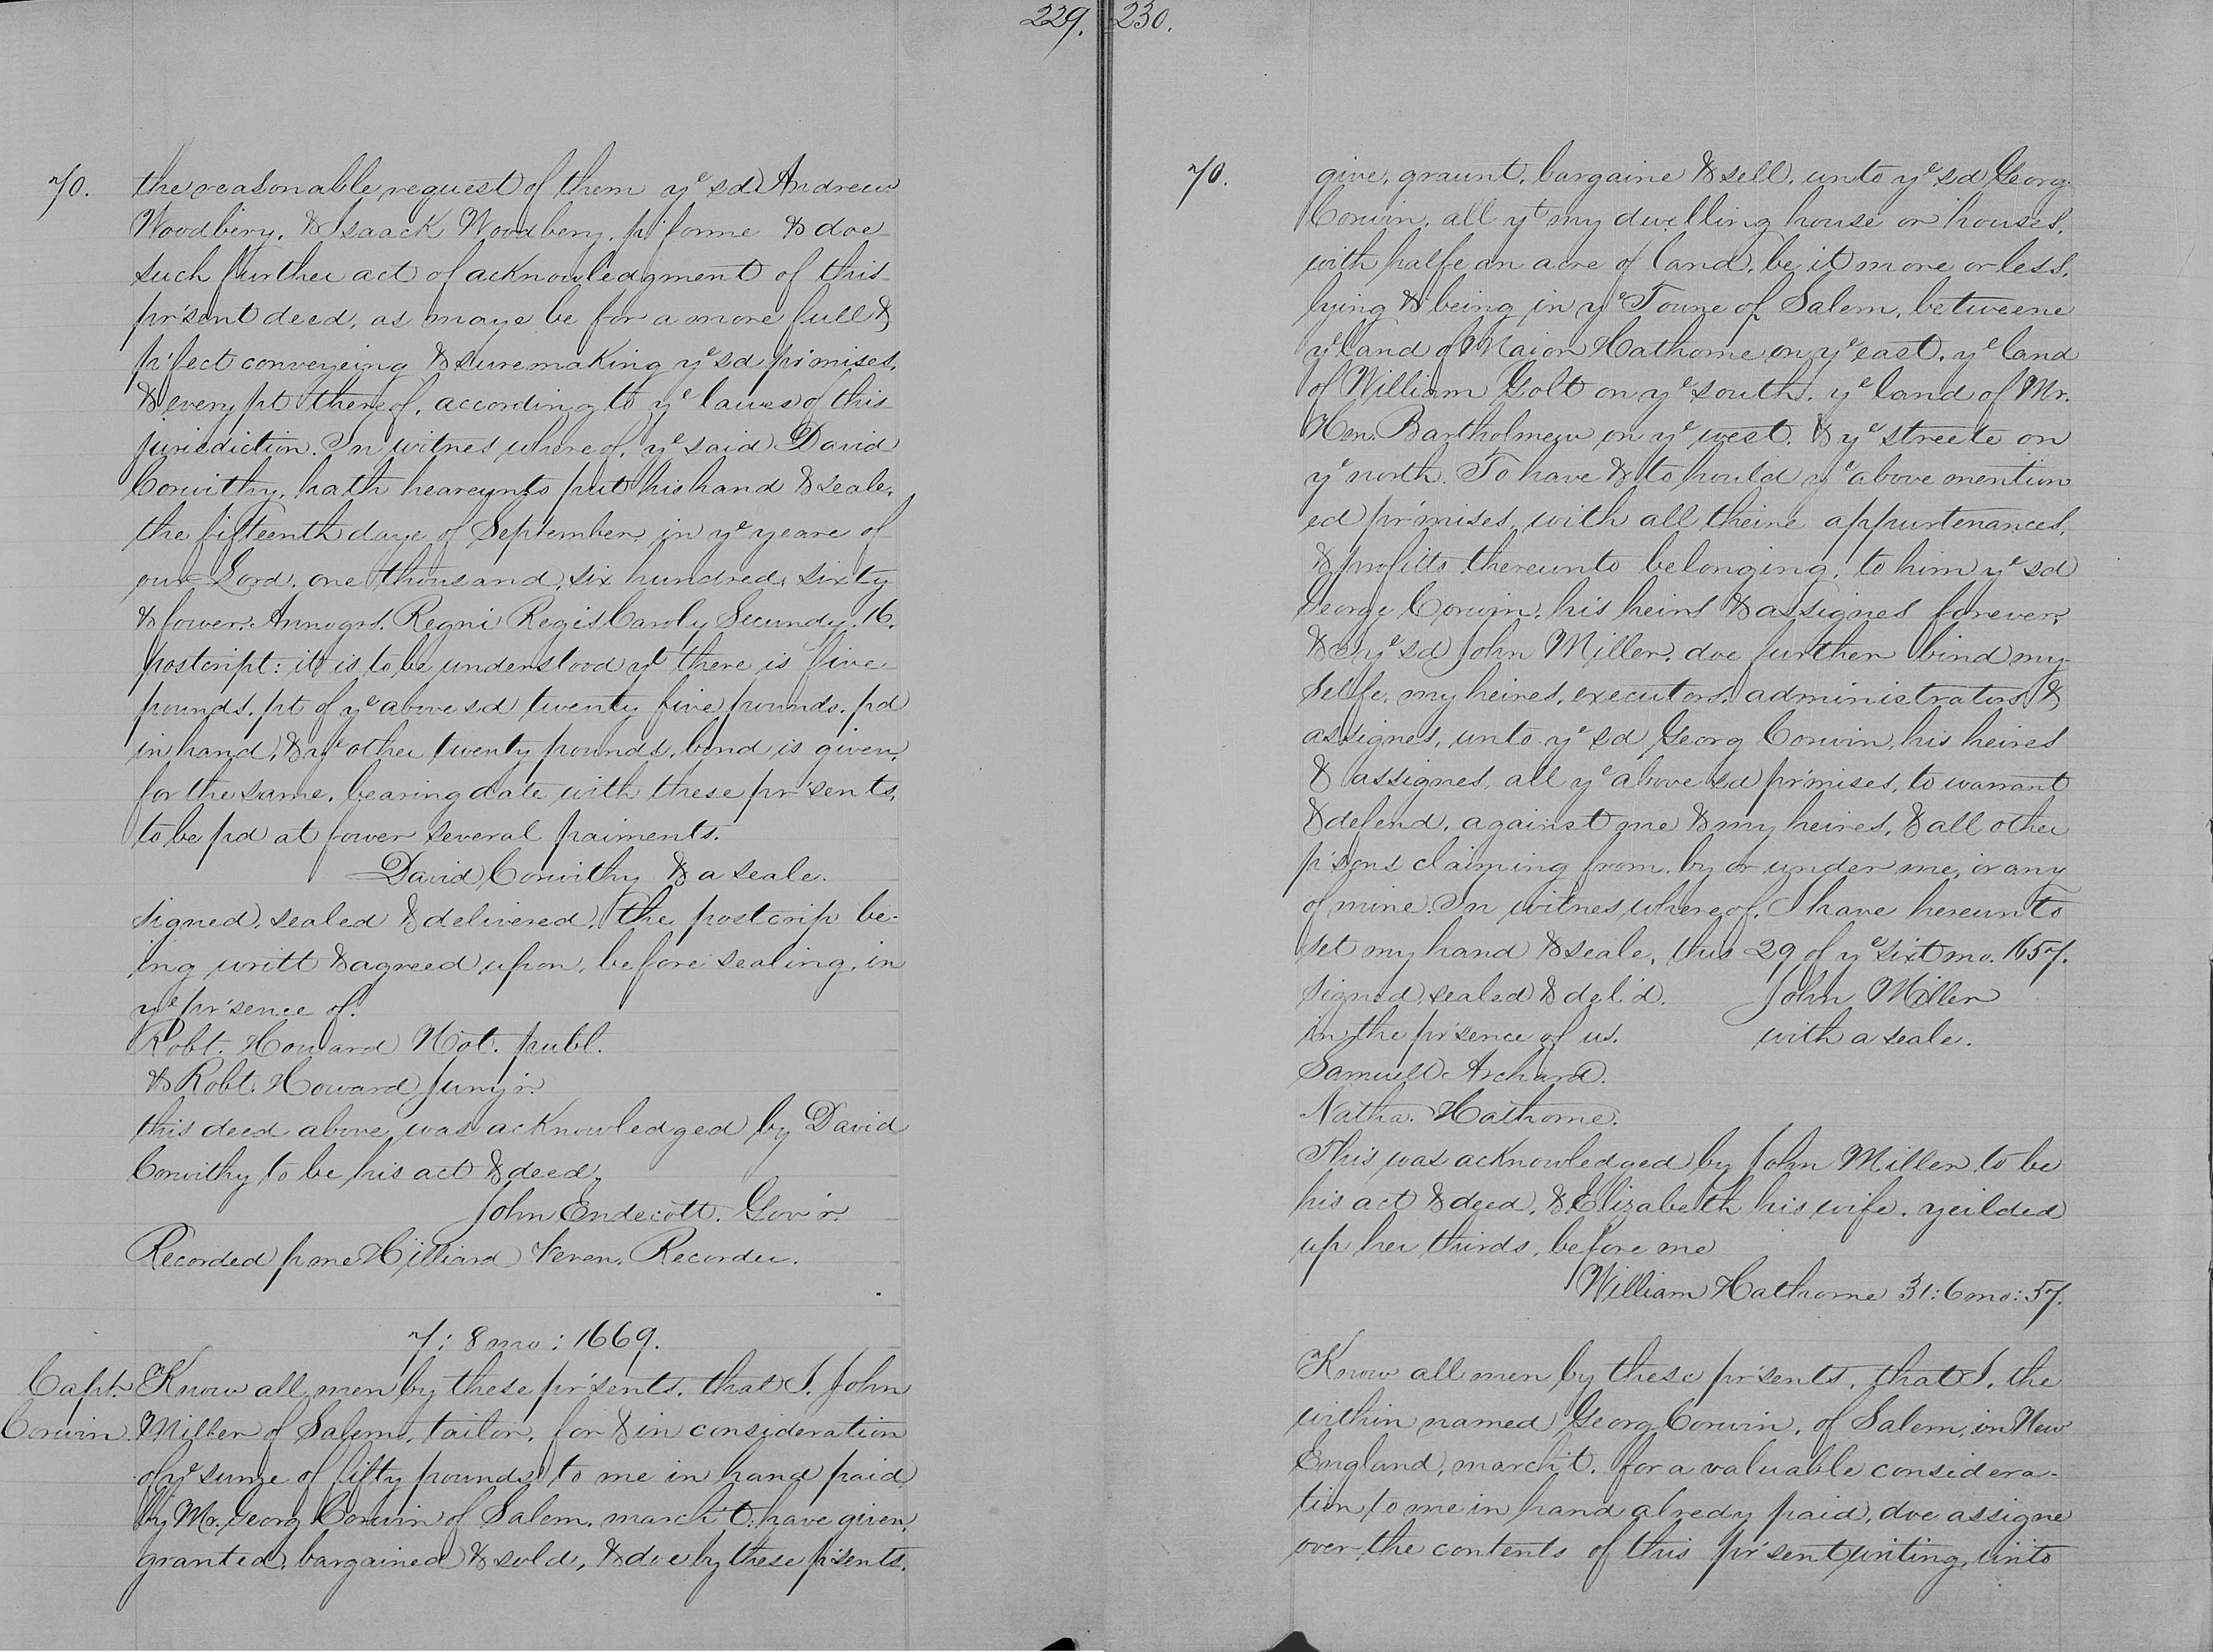 229.
70.
the reasonable request of them ye sd Andrew
Woodbery, & Isaack Woodbery, p'forme & doe
such further act of acknowledgment of this
pr'sent deed, as maye be for a more full &
p'fect conveyeing & suremaking ye sd pr'mises,
& every pt thereof, according to ye lawes of this
jurisdiction. In witnes whereof, ye said David
Corwithy, hath heareunto put his hand & seale,
the fifteenth daye of September, in ye yeare of
our Lord, one thousand, six hundred, sixty
& fower. Annoqrs. Regni Regis Caroly Secundy, 16.
postcript: it is to be understood yt there is five
pounds, pt of ye above sd twenty five pounds, pd
in hand, & ye other twenty pounds, bond is given,
for the same, bearing date with these pr'sents,
to be pd at fower several paiments.
David Corwithy & a seale.
signed, sealed & delivered, the postcrip be-
ing writt & agreed upon, before sealing, in
ye pr'sence of.
Robt. Howard Not. publ.
& Robt. Howard Junj'r.
this deed above was acknowledged by David
Corwithy to be his act & deed,
John Endecott. Gov'r.
Recorded p me Hilliard Veren, Recorder.
7: 8 mo: 1669.
Capt.
Corwin.
Know all men by these pr'sents, that I, John
Miller of Salem, tailor, for & in consideration
of ye sume of fifty pounds to me in hand paid
by Mr. Georg Corwin of Salem, march't: have given,
granted, bargained & sold, & doe by these p'sents,
230.
70.
give, graunt, bargaine & sell, unto ye sd Georg
Corwin, all yt my dwelling house or houses,
with halfe an acre of land, be it more or less,
lying & being in ye Towne of Salem, betweene
ye land of Maior Hathorne on ye east, ye land
of William Golt on ye south, ye land of Mr.
Hen. Bartholmew on ye west, & ye streete on
ye north. To have & to hould ye above mention
ed pr'mises, with all theire appurtenances,
& profitts thereunto belonging, to him ye sd
George Corwin, his heirs & assignes forever,
& I ye sd John Miller, doe further bind my-
selfe, my heires, executors, administrators &
assignes, unto ye sd Georg Corwin, his heires
& assignes, all ye above sd pr'mises, to warrant
& defend, against me & my heires, & all other
p'sons claiming from, by or under me, or any
of mine. In witnes whereof, I have hereunto
set my hand & seale, this 29 of ye sixt mo. 1657.
signed, sealed & del'd. John Miller
in the pr'sence of us. with a seale.
Samuell Archard.
Natha. Hathorne.
This was acknowledged by John Miller to be
his act & deed, & Elizabeth his wife, yeilded
up her thirds, before me
William Hathorne 31: 6 mo: 57.
Know all men by these pr'sents, that I, the
within named Georg Corwin, of Salem, in New
England, march't. for a valuable considera-
tion to me in hand alredy paid, doe assigne
over the contents of this pr'sent writing, unto